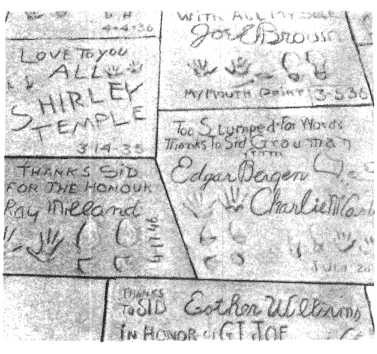 4-4-36
LOVE TO YOU
ALL
SHIRLEY
TEMPLE
3-14-35
WITH ALL MY
Joe E Brown
MY MOUTH PRINT 3-5-36
Too Slumped For Words
Thanks To Sid Grauman
From
Edgar Bergen
Charlie McCar
JULY 20
THANKS SID
FOR THE HONOUR
Ray Milland
THANKS
TO SID
Esther Williams
IN HONOR OF GI JOE